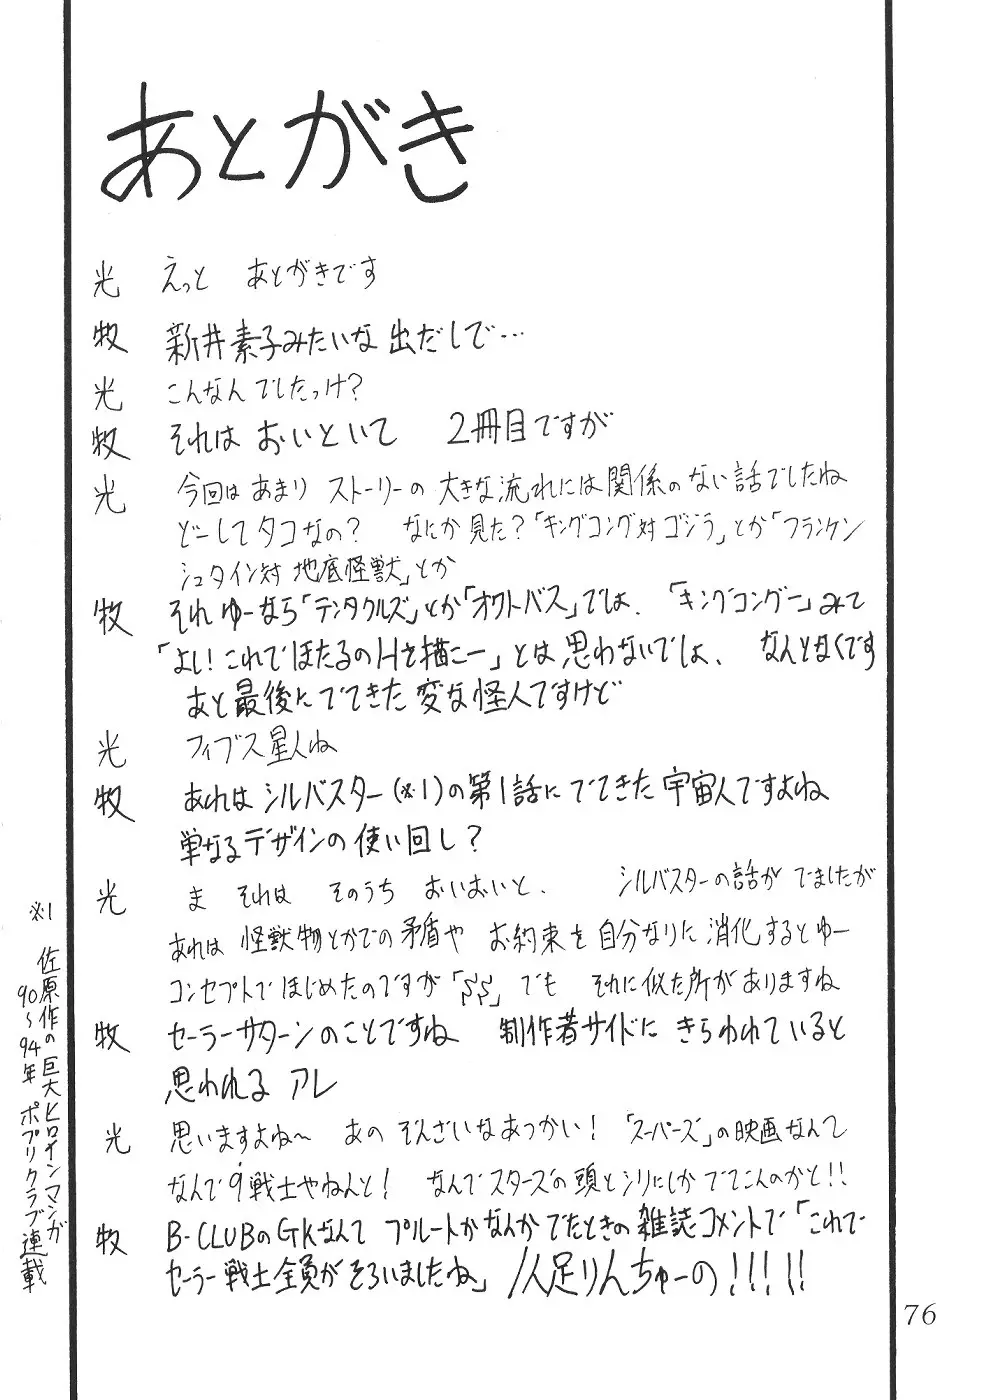 あとがき
光 えっと あとがきです
牧 新井素子みたいな出だしで…
光 こんなんでしたっけ?
牧 それは おいといて 2冊目ですが
光 今回は あまり ストーリーの 大きな流れには関係のない話でしたね
どーしてタコなの? なにか見た?「キングコング対ゴジラ」とか「フランケン
シュタイン対 地底怪獣」とか
牧 それゆーなら「テンタクルズ」とか「オクトパス」では、「キングコングー」みて
「よし!これでほたるのHを描こー」とは思わないでしょ、なんとなくです
あと最後にでてきた変な怪人ですけど
光 フィブス星人ね
牧 あれはシルバスター(※1)の第1話にでてきた宇宙人ですよね
単なるデザインの使い回し?
光 ま それは そのうち おいおいと、 シルバスターの話が でましたが
あれは 怪獣物とかでの矛盾や お約束を自分なりに消化するとゆー
コンセプトではじめたのですが「SS」でも それに似た所がありますね
牧 セーラーサターンのことですね 制作者サイドに きらわれていると
思われる アレ
光 思いますよね〜 あの ぞんざいなあつかい!「スーパーズ」の映画なんて
なんで9戦士やねんと! なんでスターズの頭とシリにしか でてこんのかと!!
牧 B-CLUBのGKなんて プルートかなんかでたときの雑誌コメントで「これで
セーラー戦士全員がそろいましたね」1人足りんちゅーの!!!!!
※1 佐原作の巨大ヒロインマンガ
90〜94年 ポプリクラブ連載
76